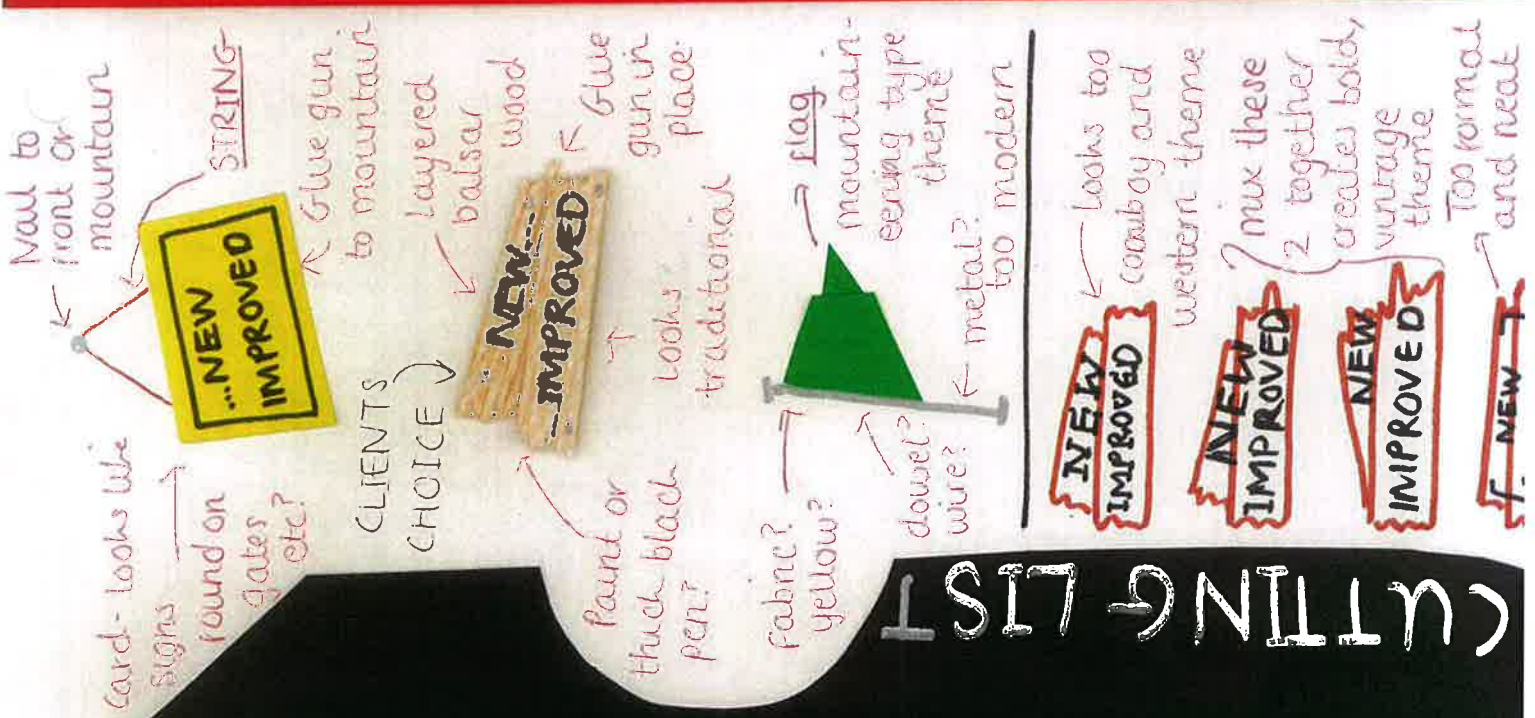 Nail to
front of
mountain
STRING
...NEW
IMPROVED
Glue gun
to mountain
card - looks like
signs
found on
gates
etc?
CLIENTS
CHOICE
Layered
balsar
wood
NEW
IMPROVED
Glue
gun in
place.
Looks
traditional
Paint or
thick black
pen?
flag
mountain-
eering type
theme
Fabric?
yellow?
dowel?
wire?
metal?
too modern
NEW
IMPROVED
Looks too
cowboy and
western theme
NEW
IMPROVED
mix these
2 together
creates bold,
vintage
theme
NEW
IMPROVED
Too formal
and neat
NEW
CUTTING LIST